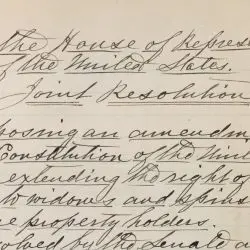 the House of Repres
of the United States.
Joint Resolution
posing an amendm
Constitution of the Unit
extending the right of
to widows and spins
e property holders.
olved by the Senate